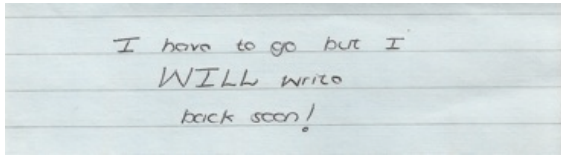 I have to go but I
WILL write
back soon!